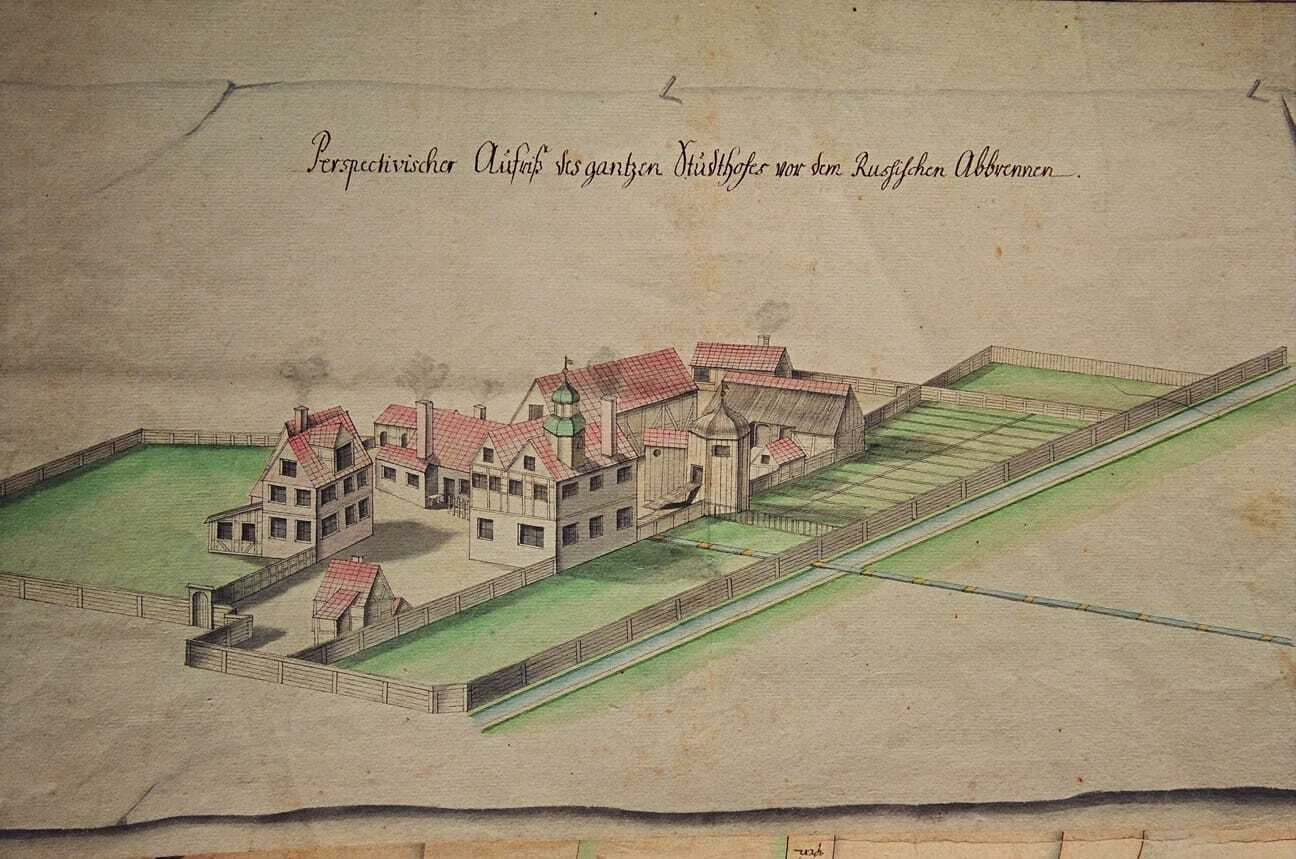 Perspectivischer Aufriß des gantzen Studthofes vor dem Russischen Abbrennen.